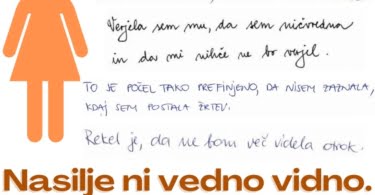 Verjela sem mu, da sem ničvredna
in da mi nihče ne bo verjel.
TO JE POČEL TAKO PREFINJENO, DA NISEM ZAZNALA,
KDAJ SEM POSTALA ŽRTEV.
Rekel je, da ne bom več videla otrok.
Nasilje ni vedno vidno.